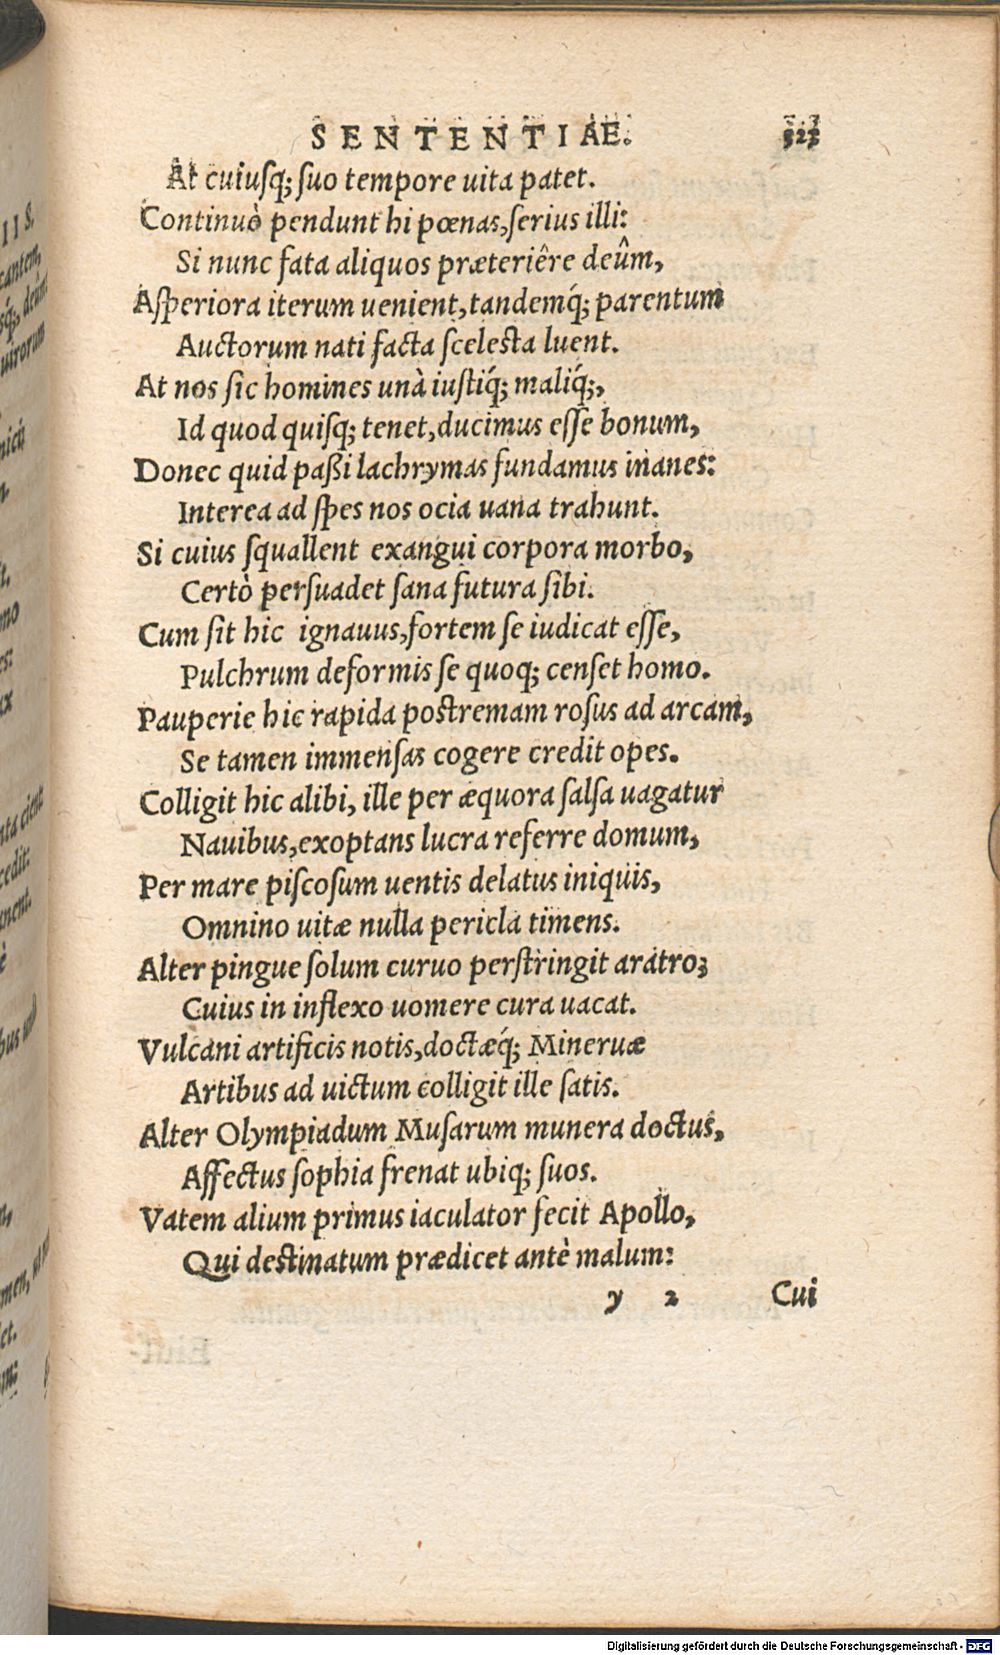 SENTENTIAE. 323
At cuiusq; suo tempore uita patet.
Continuò pendunt hi pœnas, serius illi:
Si nunc fata aliquos præteriêre deûm,
Asperiora iterum uenient, tandemq́; parentum
Auctorum nati facta scelesta luent.
At nos sic homines unà iustiq́; maliq́;,
Id quod quisq; tenet, ducimus esse bonum,
Donec quid paßi lachrymas fundamus inanes:
Interea ad spes nos ocia uana trahunt.
Si cuius squallent exangui corpora morbo,
Certò persuadet sana futura sibi.
Cum sit hic ignauus, fortem se iudicat esse,
Pulchrum deformis se quoq; censet homo.
Pauperie hic rapida postremam rosus ad arcam,
Se tamen immensas cogere credit opes.
Colligit hic alibi, ille per æquora salsa uagatur
Nauibus, exoptans lucra referre domum,
Per mare piscosum uentis delatus iniquis,
Omnino uitæ nulla pericla timens.
Alter pingue solum curuo perstringit aratro;
Cuius in inflexo uomere cura uacat.
Vulcani artificis notis, doctæq́; Mineruæ
Artibus ad uictum colligit ille satis.
Alter Olympiadum Musarum munera doctus,
Affectus sophia frenat ubiq; suos.
Vatem alium primus iaculator fecit Apollo,
Qui destinatum prædicet antè malum:
y 2 Cui
Digitalisierung gefördert durch die Deutsche Forschungsgemeinschaft - DFG